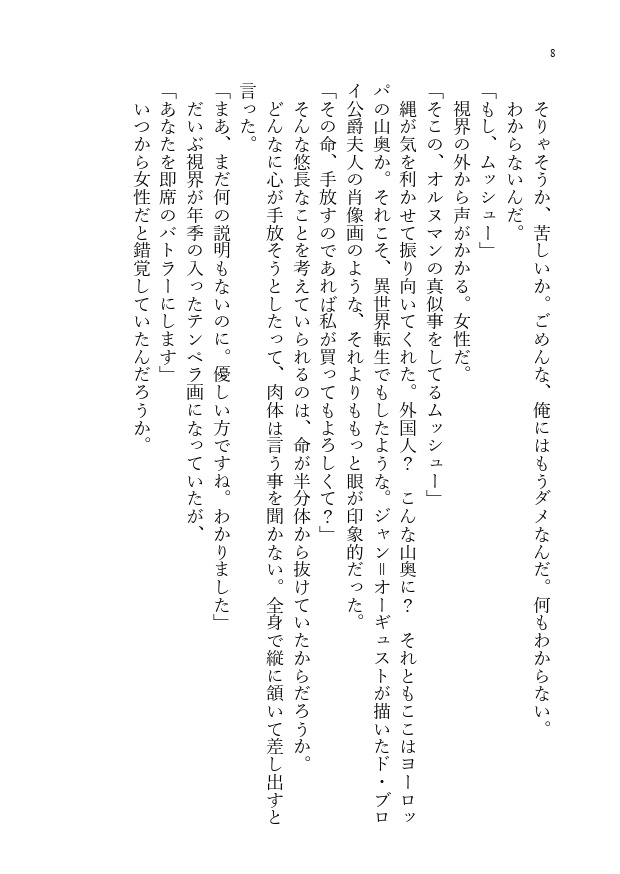 8
そりゃそうか、苦しいか。ごめんな、俺にはもうダメなんだ。何もわからない。
わからないんだ。
「もし、ムッシュー」
視界の外から声がかかる。女性だ。
「そこの、オルヌマンの真似事をしてるムッシュー」
縄が気を利かせて振り向いてくれた。外国人？　こんな山奥に？　それともここはヨーロッ
パの山奥か。それこそ、異世界転生でもしたような。ジャン＝オーギュストが描いたド・ブロ
イ公爵夫人の肖像画のような、それよりももっと眼が印象的だった。
「その命、手放すのであれば私が買ってもよろしくて？」
そんな悠長なことを考えていられるのは、命が半分体から抜けていたからだろうか。
どんなに心が手放そうとしたって、肉体は言う事を聞かない。全身で縦に頷いて差し出すと
言った。
「まあ、まだ何の説明もないのに。優しい方ですね。わかりました」
だいぶ視界が年季の入ったテンペラ画になっていたが、
「あなたを即席のバトラーにします」
いつから女性だと錯覚していたんだろうか。